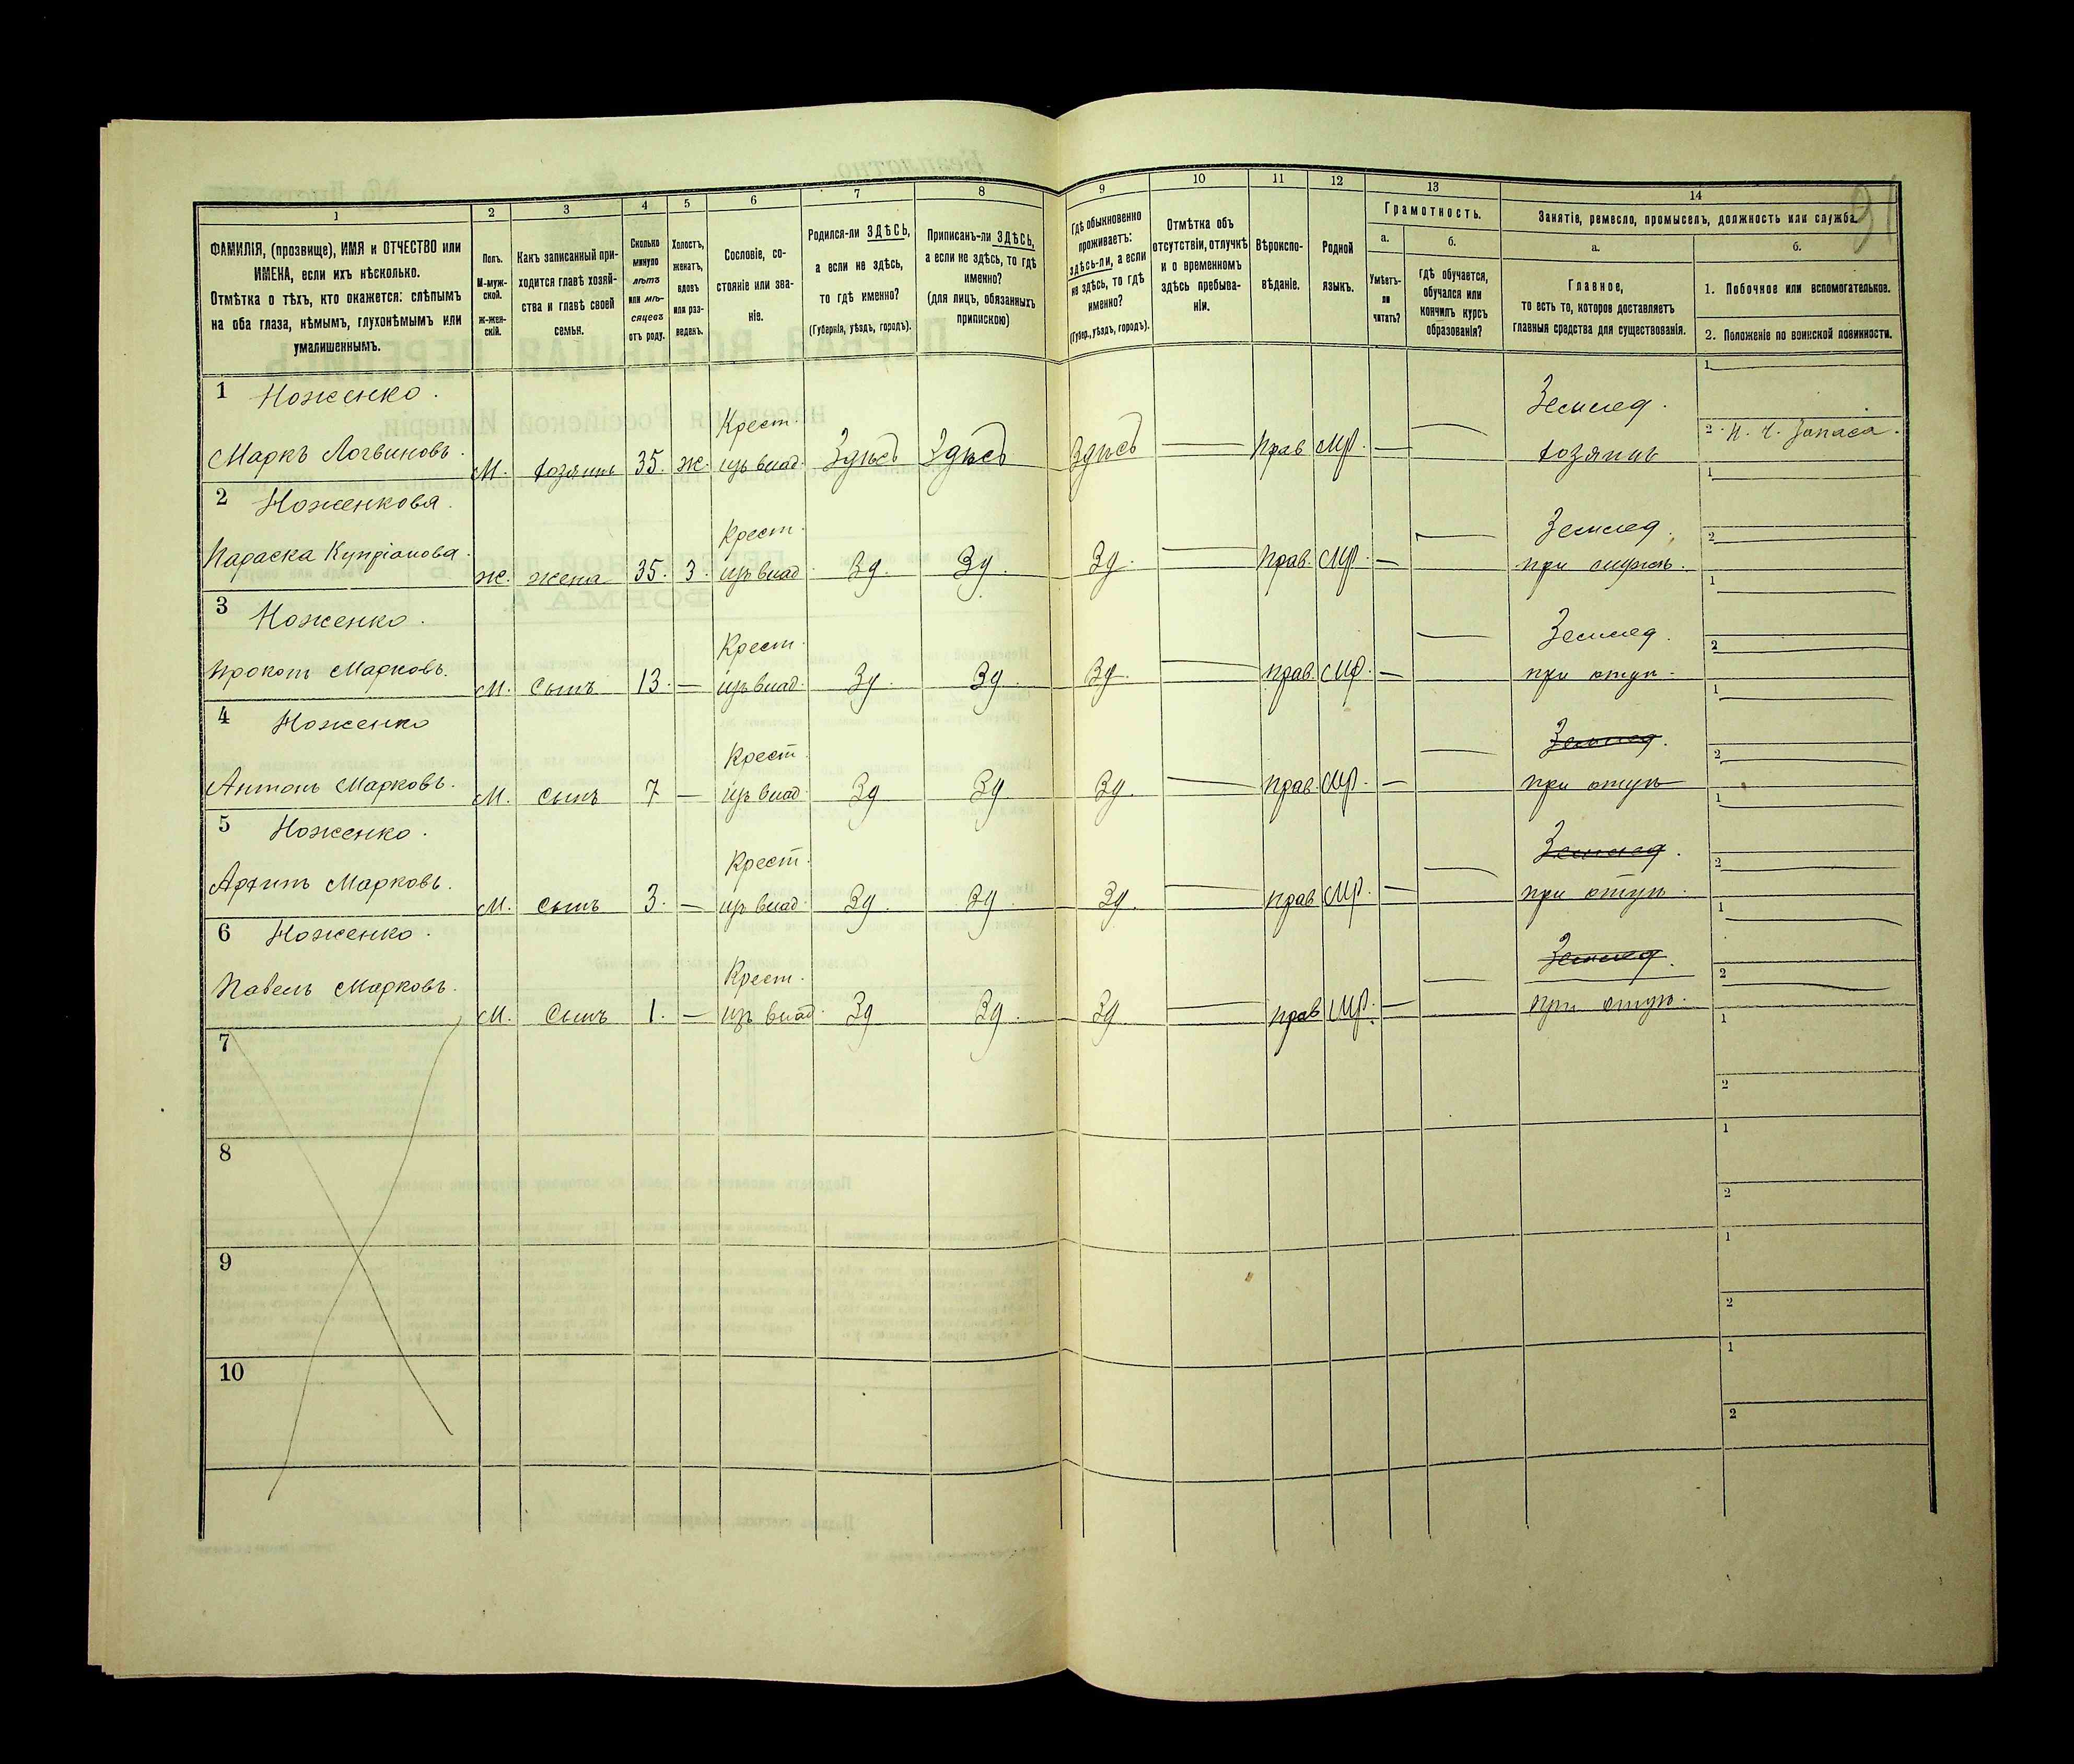 91
1 2 3 4 5 6 7 8 9 10 11 12 13 14
ФАМИЛІЯ, (прозвище), ИМЯ и ОТЧЕСТВО или
ИМЕНА, если ихъ нѣсколько.
Отмѣтка о тѣхъ, кто окажется: слѣпымъ
на оба глаза, нѣмымъ, глухонѣмымъ или
умалишеннымъ.
Полъ.
М-муж-
ской.
Ж-жен-
скій.
Какъ записанный при-
ходится главѣ хозяй-
ства и главѣ своей
семьи.
Сколько
минуло
лѣтъ
или мѣ-
сяцевъ
отъ роду.
Холостъ,
женатъ,
вдовъ
или раз-
веденъ.
Сословіе, со-
стояніе или зва-
ніе.
Родился-ли ЗДѢСЬ,
а если не здѣсь,
то гдѣ именно?
(Губернія, уѣздъ, городъ).
Приписанъ-ли ЗДѢСЬ,
а если не здѣсь, то гдѣ
именно?
(для лицъ, обязанныхъ
припискою)
Гдѣ обыкновенно
проживаетъ:
здѣсь-ли, а если
не здѣсь, то гдѣ
именно?
(Губер., уѣздъ, городъ).
Отмѣтка объ
отсутствіи, отлучкѣ
и о временномъ
здѣсь пребыва-
ніи.
Вѣроиспо-
вѣданіе.
Родной
языкъ.
Грамотность.
а.
Умѣетъ-
ли
читать?
б.
Гдѣ обучается,
обучался или
кончилъ курсъ
образованія?
Занятіе, ремесло, промыселъ, должность или служба.
а.
Главное,
то есть то, которое доставляетъ
главныя средства для существованія.
б.
1. Побочное или вспомогательное.
2. Положеніе по воинской повинности.
1 Ноженко. Крест. Землед. 1
Маркъ Логвиновъ. М. хозяинъ 35. ж. Здѣсь Здѣсь Здѣсь — Прав. Мр. — — хозяинъ 2 Запаса.
2 Ноженкова. Крест. Землед. 1
Параска Купріанова. Ж. жена 35. З. Зд. Зд. Зд. — Прав. Мр. — — при мужѣ. 2
3 Ноженко. Крест. Землед. 1
Прокопъ Марковъ. М. Сынъ 13. — Зд. Зд. Зд. — Прав. Мр. — — при отцѣ. 2
4 Ноженко Крест. Землед. 1
Антонъ Марковъ. М. Сынъ 7 — Зд Зд Зд. — Прав. Мр. — — при отцѣ 2
5 Ноженко. Крест. Землед. 1
Архипъ Марковъ. М. Сынъ 3. — Зд. Зд. Зд. — Прав. Мр. — — при отцѣ. 2
6 Ноженко. Крест. Землед. 1
Павелъ Марковъ. М. Сынъ 1. — Зд Зд. Зд. — Прав. Мр. — — при отцѣ. 2
7 1
2
8 1
2
9 1
2
10 1
2